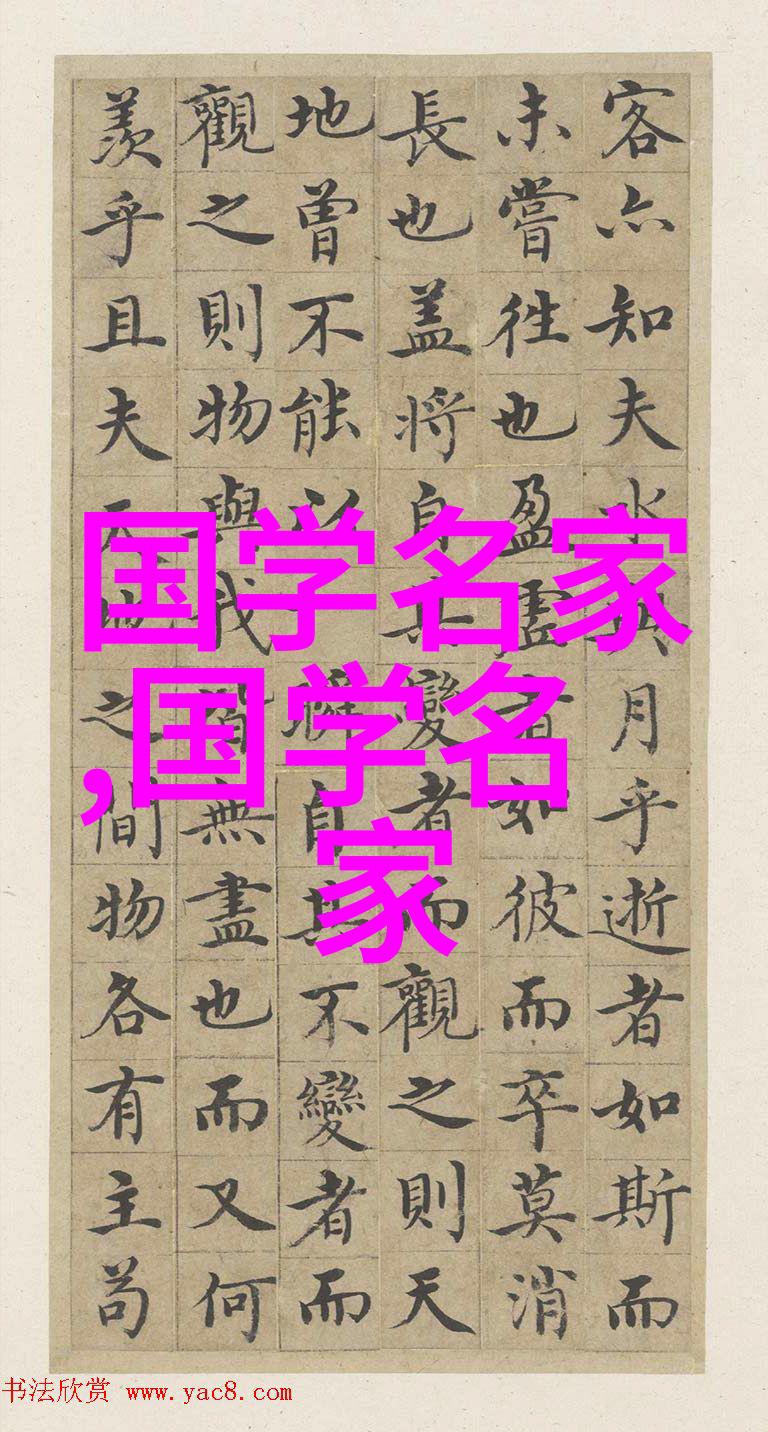 客亦知夫水月乎逝者如斯而
未嘗往也盈虛者如彼而卒莫消
長也盖將自其變者而觀之則天
地曾不能以瞬自其不變者而
觀之則物與我皆無盡也而又何
羨乎且夫天地之間物各有主苟
国学名家
,国学名
家
书法欣赏 www.yac8.com